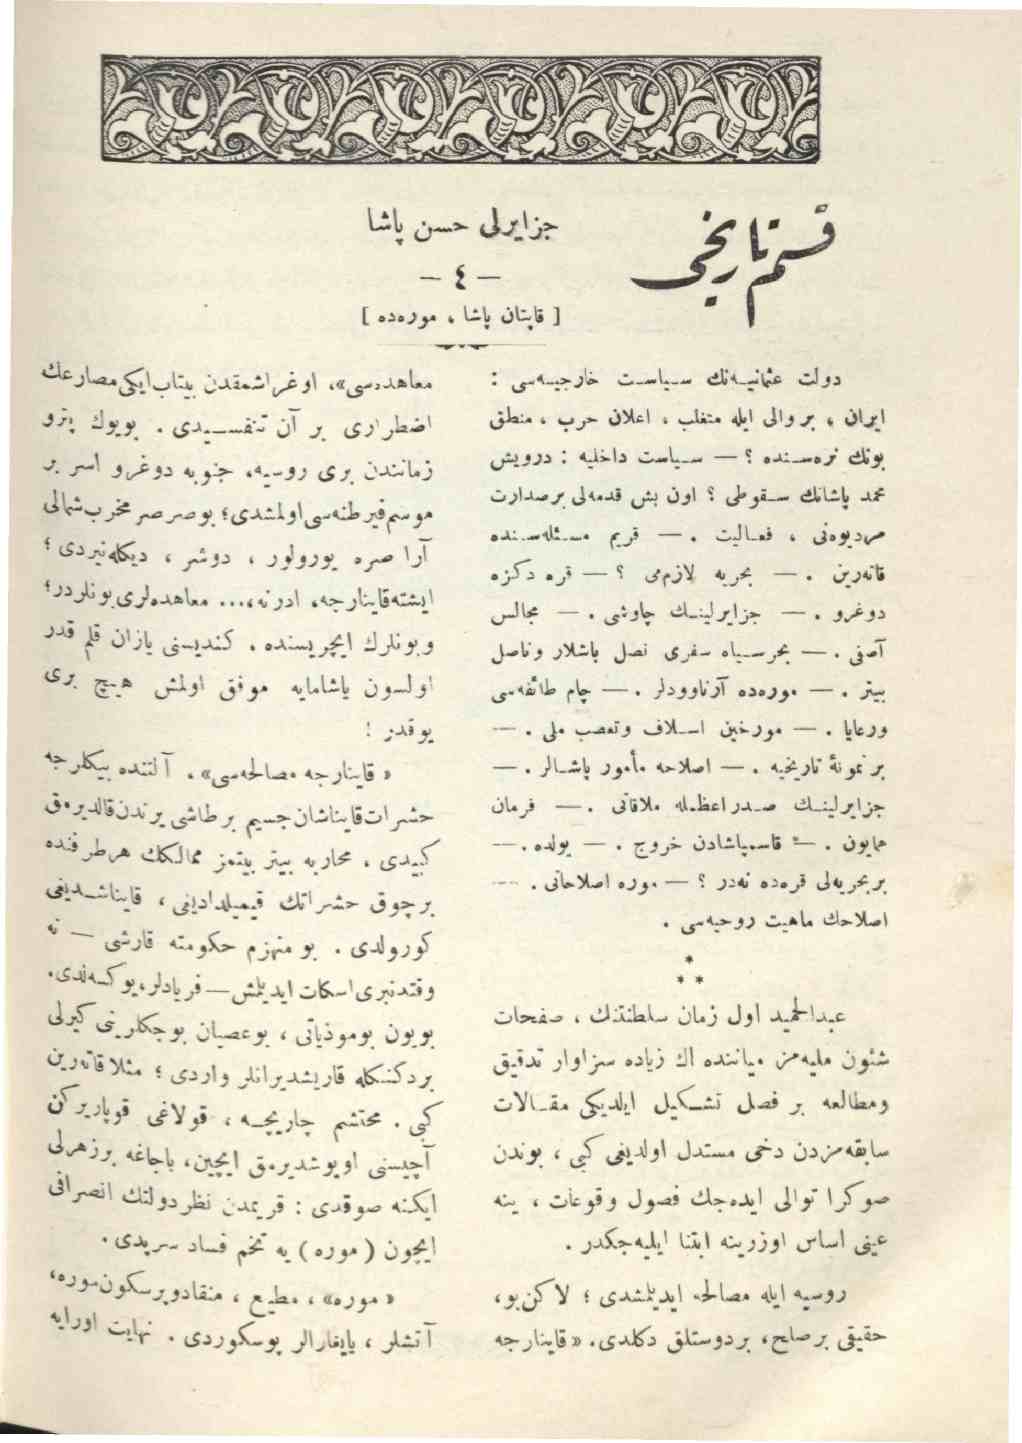 قسم تاریخی
جزایرلی حسن پاشا
— ٤ —
[ قاپتان پاشا ، موره‌ده ]
دولت عثمانیـه‌نك سـیاسـت خارجیـه‌سی :
ایران ، بر والی ایله متغلب ، اعلان حرب ، منطق
بونك نره‌سـنده ؟ — سـیاست داخلیه : درویش
محمد پاشانك سـقوطی ؟ اون بش قدمه‌لی برصدارت
مردیوه‌نی ، فعـالیت . — قریم مسـئله‌سـنده
قاته‌رین . — بحریه لازم‌می ؟ — قره دكزه
دوغرو . — جزایرلینـك چاوشی . — مجالس
آصفی . — بحرسـیاه سفری نصل باشلار وناصل
بیتر . — موره‌ده آرناوودلر . — چام طائفه‌سی
ورعایا . — مورخین اسـلاف وتعصب ملی . —
بر نمونهٔ تاریخیه . — اصلاحه مأمور پاشـالر . —
جزایرلینـك صـدراعظمله ملاقاتی . — فرمان
همایون . — قاسم‌پاشادن خروج . — یولده . —
بربحریه‌لی قره‌ده نه‌در ؟ — موره اصلاحاتی . —
اصلاحك ماهیت روحیه‌سی .
*
* *
عبدالحمید اول زمان سلطنتنك ، صفحات
شئون ملیه‌مز میاننده اك زیاده سزاوار تدقیق
ومطالعه بر فصل تشـكیل ایلدیكی مقـالات
سابقه‌مزدن دخی مستدل اولدیغی كبی ، بوندن
صوكرا توالی ایده‌جك فصول وقوعات ، ینه
عینی اساس اوزرینه ابتنا ایلیه‌جكدر .
روسیه ایله مصالحه ایدیلمشدی ؛ لاكن بو،
حقیقی برصلح، بردوستلق دكلدی. « قاینارجه
معاهده‌سی»، اوغراشمقدن بیتاب‌ایكی‌مصارعك
اضطراری بر آن تنفسـیدی . بویوك پترو
زمانندن بری روسیه، جنوبه دوغرو اسر بر
موسم‌فیرطنه‌سی‌اولمشدی؛ بوصرصر مخرب‌شمالی
آرا صره یورولور ، دوشر ، دیكله‌نیردی ؛
ایشته‌قاینارجه، ادرنه،... معاهده‌لری‌بونلردر؛
وبونلرك ایچریسنده . كندیسنی یازان قلم قدر
اولسون یاشامایه موفق اولمش هیـچ بری
یوقدر !
« قاینارجه مصالحه‌سی» . آلتنده بیكلرجه
حشرات‌قایناشان‌جسیم برطاشی یرندن‌قالدیرمق
كبیدی . محاربه بیتر بیتمز ممالكك هرطرفنده
برچوق حشراتك قیمیلدادیغی ، قایناشـدیغی
كورولدی . بو منهزم حكومته قارشی — نه
وقتدنبری‌اسكات ایدیلمش — فریادلر،یوكسه‌لدی.
بویون بوموذیاتی ، بوعصیان بوجكلرینی كیزلی
بردكنكله قاریشدیرانلر واردی ؛ مثلا قاته‌رین
كبی . محتشم چاریچـه ، قولاغی قوپاریركن
آچیسنی اویوشدیرمق ایچین، باجاغه برزهرلی
ایكنه صوقدی : قریمدن نظردولتك انصرافی
ایچون ( موره ) یه تخم فساد سرپدی.
« موره» ، مطیع ، منقادوپرسكون‌موره،
آتشلر ، یایغارالر پوسكوردی . نهایت اورایه